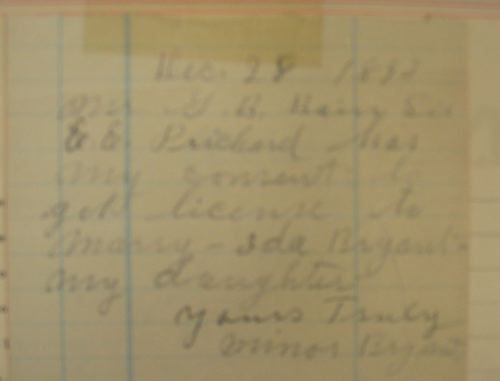 Dec. 28
Mr G. H. Sir
E. E. Prichard has
my consent to
get license to
Marry - Ida Bryant -
my daughter
yours Truly
Minor Bryant